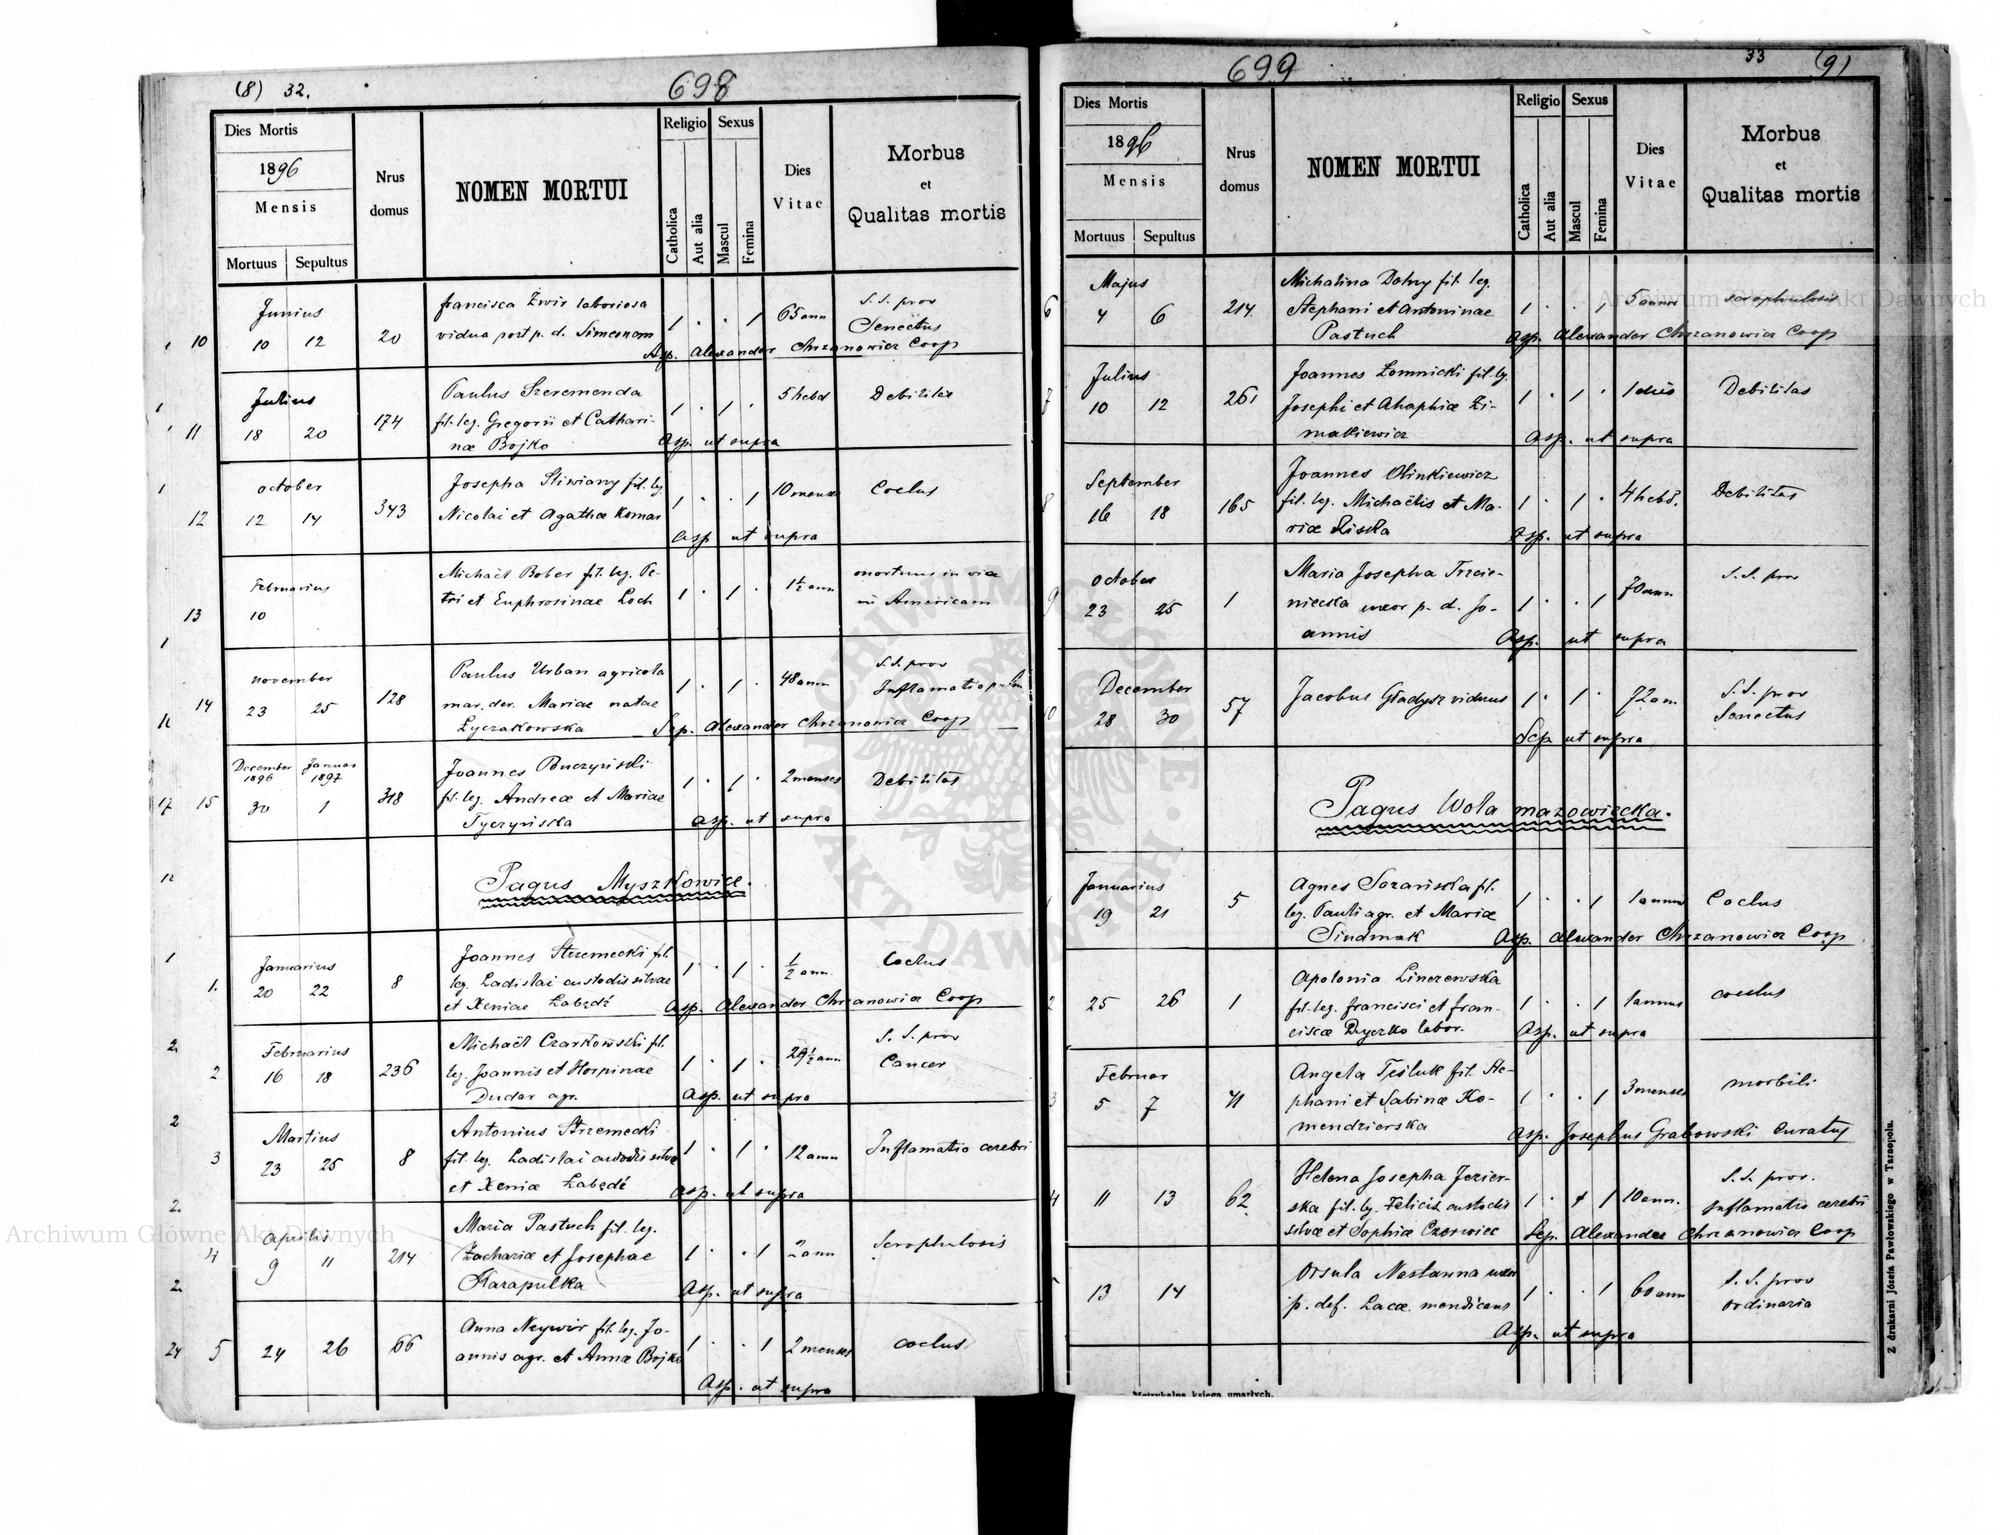 (8) 32.
698
Dies Mortis
1896
Mensis
Mortuus Sepultus
Nrus domus
NOMEN MORTUI
Religio
Catholica
Aut alia
Sexus
Mascul
Femina
Dies Vitae
Morbus
et
Qualitas mortis
Junius
10 10 12 20
francisca Żwir laboriosa
vidua post p. d. Simeonem
1 . . 1 65 ann
S.S. prov
Senectus
Asp. Alexander Chrzanowicz Coop
Julius
11 18 20 174
Paulus Szeremenda
fil. leg. Gregorii et Cathari-
nae Bojko
1 . 1 . 5 hebd Debilitas
Asp. ut supra
October
12 12 14 343
Josepha Śliwiany fil. leg
Nicolai et Agathae Komar
1 . . 1 10 menses Coclus
Asp ut supra
Februarius
13 10
Michaël Bober fil. leg. Pe-
tri et Euphrosinae Loch
1 . 1 . 1½ ann
mortuus in via
in Americam
November
14 23 25 128
Paulus Urban agricola
mar. der. Mariae natae
Łyczakowska
1 . 1 . 48 ann
S.S. prov
Inflamatio
Sep. Alexander Chrzanowicz Coop
December 1896 Januar 1897
15 30 1 318
Joannes Buczyński
fil. leg. Andreae et Mariae
Tyczyńska
1 . 1 . 2 menses Debilitas
Asp. ut supra
Pagus Myszkowice.
Januarius
1. 20 22 8
Joannes Strzemecki fil.
leg. Ladislai custodis silvae
et Xeniae Łabędź
1 . 1 . ½ ann. Coclus
Asp. Alexander Chrzanowicz Coop
Februarius
2 16 18 236
Michaël Czarkowski fil.
leg. Joannis et Horpinae
Dudar agr.
1 . 1 . 29½ ann
S.S. prov
Cancer
Asp. ut supra
Martius
3 23 25 8
Antonius Strzemecki
fil. leg. Ladislai custodis silvae
et Xeniae Łabędź
1 . 1 . 12 ann Inflamatio cerebri
Asp. ut supra
Aprilis
4 9 11 214
Maria Pastuch fil. leg.
Zachariae et Josephae
Karapulka
1 . . 1 2 ann Scrophulosis
Asp. ut supra
5 24 26 66
Anna Neywir fil. leg. Jo-
annis agr. et Annae Bojko
1 . . 1 2 menses coclus
Asp. ut supra
699
33 (9)
Dies Mortis
1896
Mensis
Mortuus Sepultus
Nrus domus
NOMEN MORTUI
Religio
Catholica
Aut alia
Sexus
Mascul
Femina
Dies Vitae
Morbus
et
Qualitas mortis
Majus
6 4 6 214
Michalina Dolny fil. leg.
Stephani et Antoninae
Pastuch
1 . . 1 5 ann scrophulosis
Asp. Alexander Chrzanowicz Coop
Julius
7 10 12 261
Joannes Łomnicki fil. leg.
Josephi et Ahaphiae Zi-
makiewicz
1 . 1 . 1 dies Debilitas
Asp. ut supra
September
8 16 18 165
Joannes Olinkiewicz
fil. leg. Michaëlis et Ma-
riae Liska
1 . 1 . 4 hebd. Debilitas
Asp. ut supra
October
9 23 25 1
Maria Josepha Trzcie-
niecka uxor p. d. Jo-
annis
1 . . 1 70 ann
S.S. prov
Asp. ut supra
December
10 28 30 57
Jacobus Gładysz viduus
1 . 1 . 72 an.
S.S. prov
Senectus
Sep ut supra
Pagus Wola mazowiecka.
Januarius
1 19 21 5
Agnes Szrańska fil.
leg. Pauli agr. et Mariae
Sindmak
1 . . 1 1 annus Coclus
Asp. Alexander Chrzanowicz Coop
2 25 26 1
Apolonia Linczewska
fil. leg. francisci et fran-
ciscae Dyczko labor.
1 . . 1 1 annus coclus
Asp. ut supra
Februar
3 5 7 41
Angela Teśluk fil. Ste-
phani et Sabinae Ko-
mendzierska
1 . . 1 3 menses morbili
Asp. Josephus Grabowski curatus
4 11 13 62
Helena Josepha Jezier-
ska fil. leg. Felicis custodis
silvae et Sophiae Czerwiec
1 . 1 10 ann.
S.S. prov.
Inflamatio cerebri
Sep. Alexander Chrzanowicz Coop
13 14
Orsula Nestawna uxor
p. def. Lacae. mendicans
1 . . 1 60 ann
S.S. prov
ordinaria
Asp. ut supra
Metrykalna księga umarłych.
Z drukarni Józefa Pawłowskiego w Tarnopolu.
Archiwum Główne Akt Dawnych
Archiwum Główne Akt Dawnych
ARCHIWUM GŁÓWNE AKT DAWNYCH